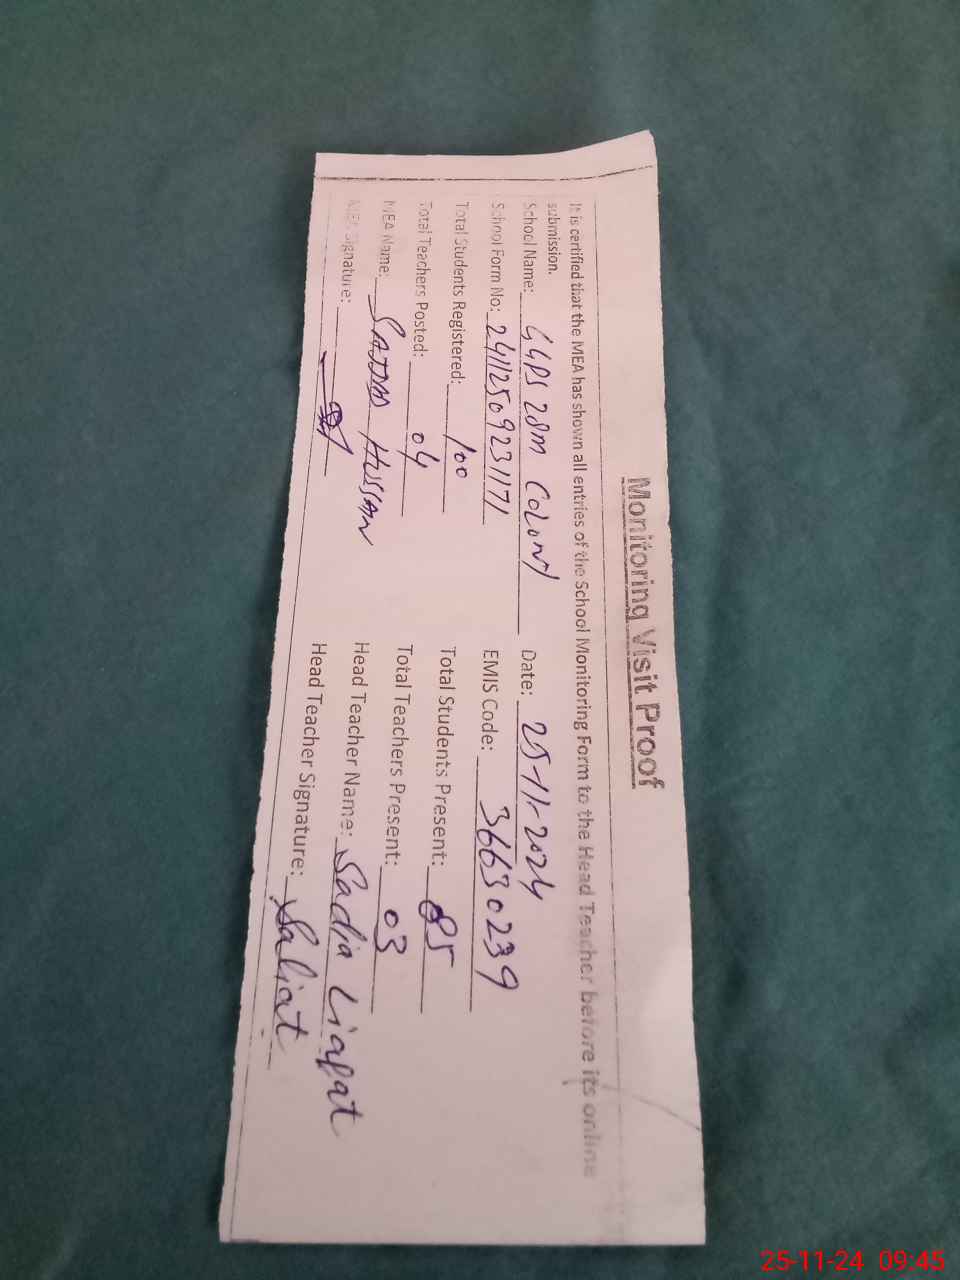 Monitoring Visit Proof
It is certified that the MEA has shown all entries of the School Monitoring Form to the Head Teacher before its online
submission.
School Name: GGPS 28M COLONY Date: 25-11-2024
School Form No: 24112509231171 EMIS Code: 36630239
Total Students Registered: 100 Total Students Present: 85
Total Teachers Posted: 04 Total Teachers Present: 03
MEA Name: SAJJAD HUSSAN Head Teacher Name: Sadia Liaqat
MEA Signature: Head Teacher Signature: Saliat
25-11-24 09:45